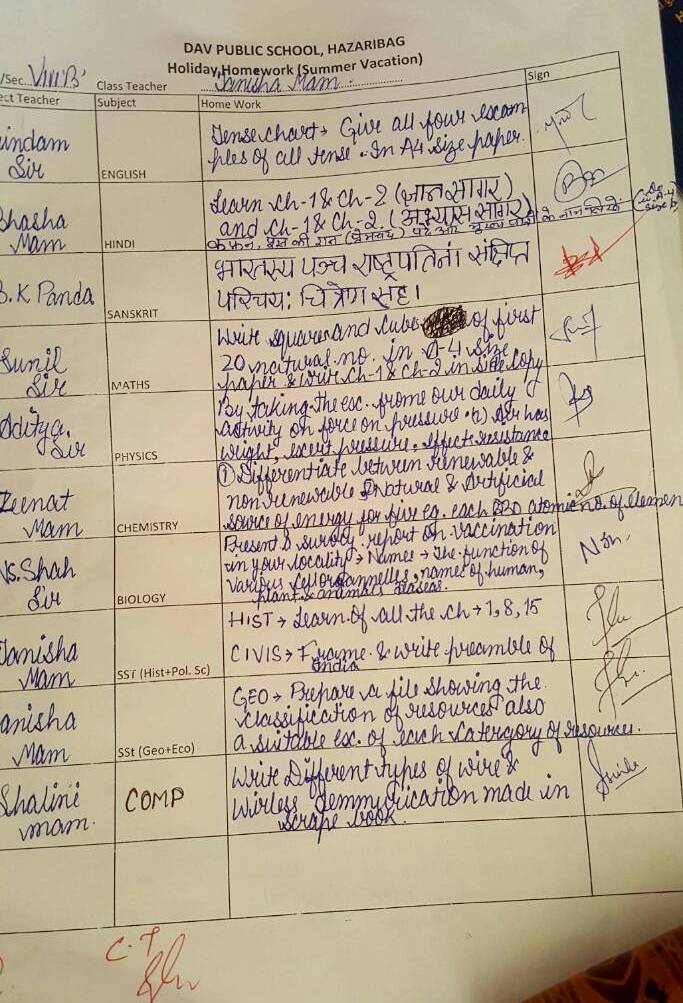 DAV PUBLIC SCHOOL, HAZARIBAG
Holiday Homework (Summer Vacation)
/Sec. VIII 'B' Class Teacher Tanisha Mam
ect Teacher Subject Home Work Sign
indam Sir
ENGLISH
Tense chart → Give all four exam
ples of all tense. In A4 size paper.
Bhasha Mam
HINDI
Learn Ch-1 & Ch-2 (ज्ञान सागर)
and Ch-1 & Ch-2. (अभ्यास सागर)
B.K Panda
SANSKRIT
भारतस्य पञ्च राष्ट्रपतिनां संक्षिप्त
परिचय: चित्रेण सह।
Sunil Sir
MATHS
Write square and cube of first
20 natural no. in A-4 size
paper & write Ch-1 & Ch-2 in side copy
Aditya Sir
PHYSICS
By taking the ex. frome our daily
activity on force on pressure. 2) Air has
wight, exert pressure, effects resistance
Zeenat Mam
CHEMISTRY
① Differentiate betwen renewable &
non renewable ② Natural & Artificial
source of energy for five eg. each atomic no. of elemen
Vs. Shah Sir
BIOLOGY
Present a survey report on vaccination
in your locality → Names → The function of
various cell organnelles, names of human,
plant & animals
Tanisha Mam
SST (Hist+Pol. Sc)
HIST → Learn of all the ch → 1, 8, 15
CIVIS → Frame & write preamble of
India
anisha Mam
SSt (Geo+Eco)
GEO → Prepare a file showing the
classification of resources also
a suitable ex. of each catergory of resources.
Shalini mam.
COMP
Write Different types of wire &
wirless made in
scrape book.
C.T